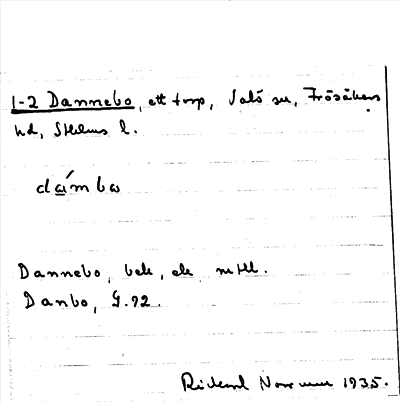 1-2 Dannebo, ett torp, Valö sn, Frösåkers
hd, Sthlms l.
daḿmbo
Dannebo, bek, ek, mtll.
Danbo, G.92.
Rickard Norrman 1935.